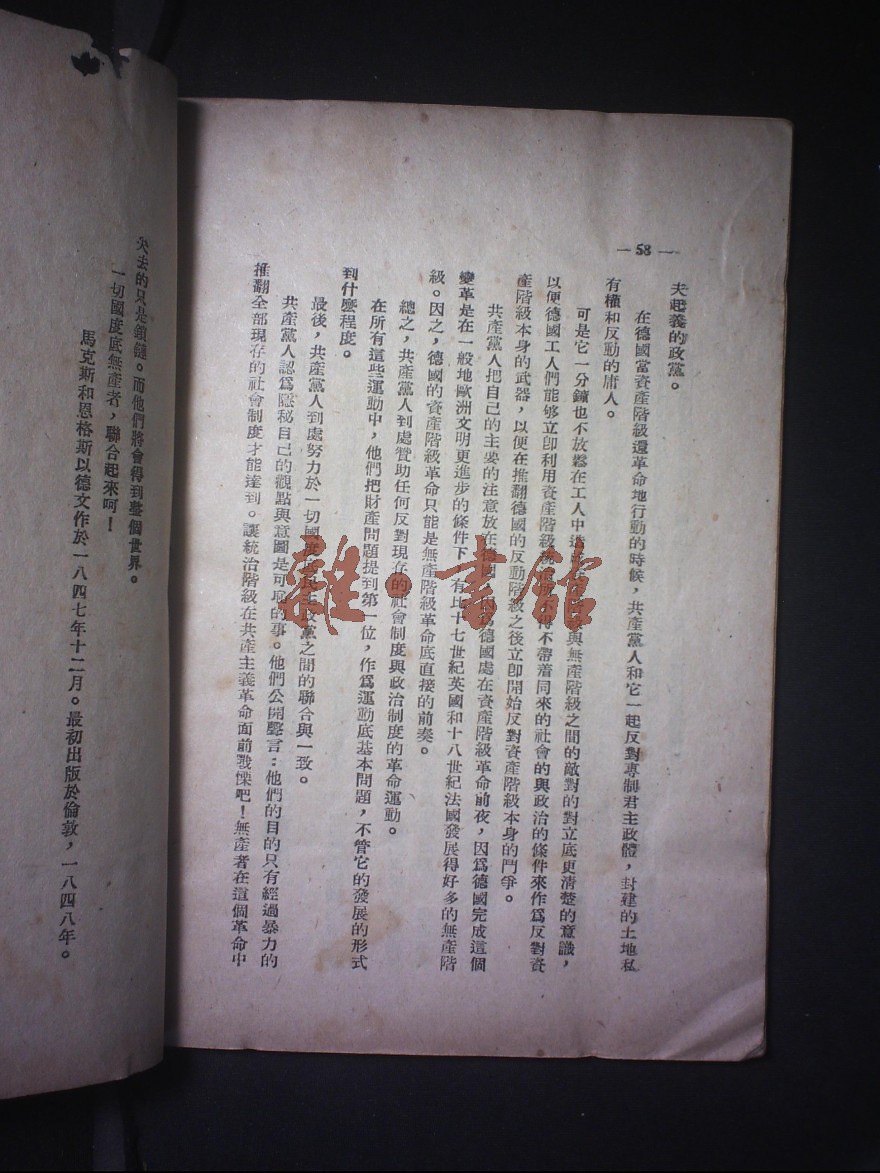 — 58 —
夫起義的政黨。
在德國當資產階級還革命地行動的時候，共產黨人和它一起反對專制君主政體，封建的土地私
有權和反動的庸人。
可是它一分鐘也不放鬆在工人中造與無產階級之間的敵對的對立底更清楚的意識，
以便德國工人們能够立卽利用資產階級得不帶着同來的社會的與政治的條件來作爲反對資
產階級本身的武器，以便在推翻德國的反動階級之後立卽開始反對資產階級本身的鬥爭。
共產黨人把自己的主要的注意放在德國，爲德國處在資產階級革命前夜，因爲德國完成這個
變革是在一般地歐洲文明更進步的條件下，有比十七世紀英國和十八世紀法國發展得好多的無產階
級。因之，德國的資產階級革命只能是無產階級革命底直接的前奏。
總之，共產黨人到處贊助任何反對現存的社會制度與政治制度的革命運動。
在所有這些運動中，他們把財產問題提到第一位，作爲運動底基本問題，不管它的發展的形式
到什麼程度。
最後，共產黨人到處努力於一切國度底民主政黨之間的聯合與一致。
共產黨人認爲隱秘自己的觀點與意圖是可恥的事。他們公開聲言：他們的目的只有經過暴力的
推翻全部現存的社會制度才能達到。讓統治階級在共產主義革命面前戰慄吧！無產者在這個革命中
失去的只是鎖鏈。而他們將會得到整個世界。
一切國度底無產者，聯合起來呵！
馬克斯和恩格斯以德文作於一八四七年十二月。最初出版於倫敦，一八四八年。
雜·書館